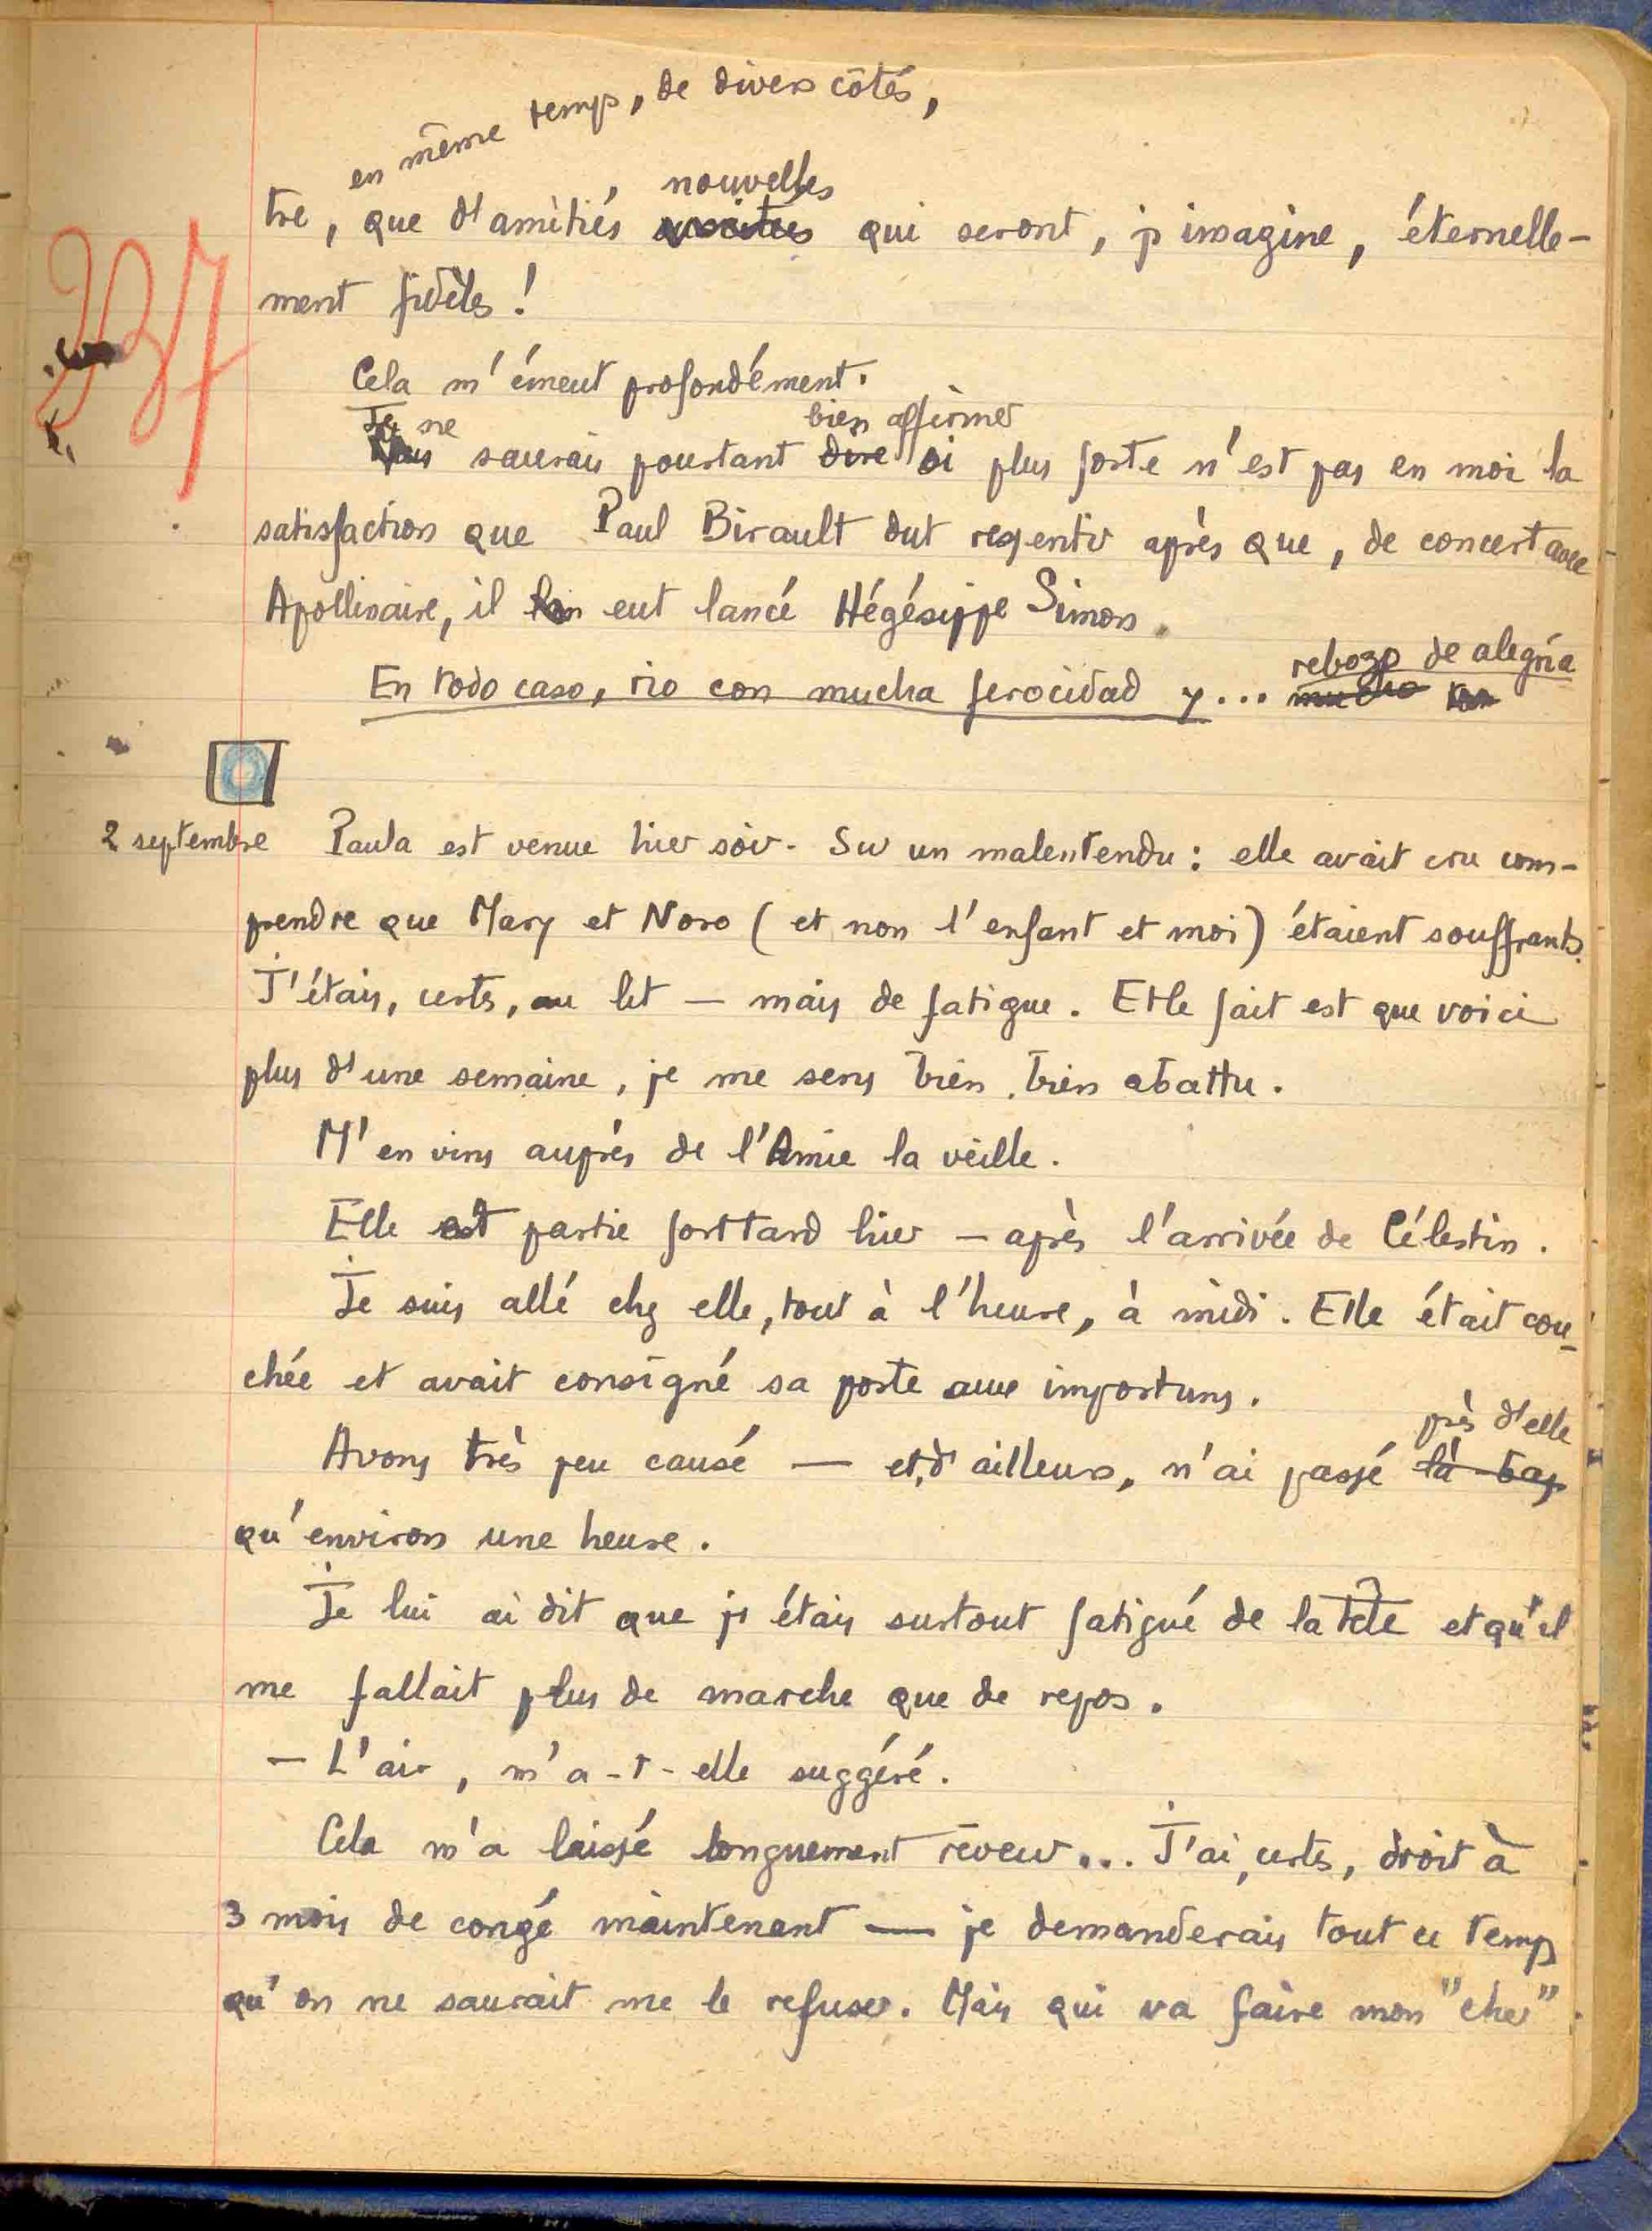 337
en même temps, de divers côtés,
nouvelles
tre, que d'amitiés suscitées qui seront, j'imagine, éternelle-
ment fidèles !
Cela m'émeut profondément.
Je ne bien affirmer
saurais pourtant dire si plus forte n'est pas en moi la
satisfaction que Paul Birault dut ressentir après que, de concert avec
Apollinaire, il eut lancé Hégésippe Simon.
rebozo de alegría
En todo caso, rio con mucha ferocidad y... mucho
2 septembre Paula est venue hier soir. Sur un malentendu : elle avait cru com-
prendre que Mary et Noro (et non l'enfant et moi) étaient souffrants.
J'étais, certes, au lit — mais de fatigue. Et le fait est que voici
plus d'une semaine, je me sens bien, bien abattu.
M'en vins auprès de l'Amie la veille.
Elle est partie fort tard hier — après l'arrivée de Célestin.
Je suis allé chez elle, tout à l'heure, à midi. Elle était cou-
chée et avait consigné sa porte aux importuns.
près d'elle
Avons très peu causé — et, d'ailleurs, n'ai passé là-bas
qu'environ une heure.
Je lui ai dit que j'étais surtout fatigué de la tête et qu'il
me fallait plus de marche que de repos.
— L'air, m'a-t-elle suggéré.
Cela m'a laissé longuement rêveur... J'ai, certes, droit à
3 mois de congé maintenant — je demanderais tout ce temps
qu'on ne saurait me le refuser. Mais qui va faire mon "cher"